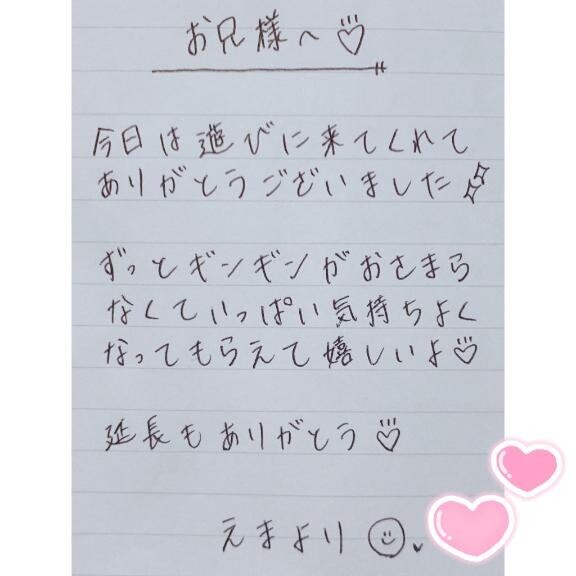 お兄様へ♡
今日は遊びに来てくれて
ありがとうございました
ずっとギンギンがおさまら
なくていっぱい気持ちよく
なってもらえて嬉しいよ♡
延長もありがとう♡
えまより